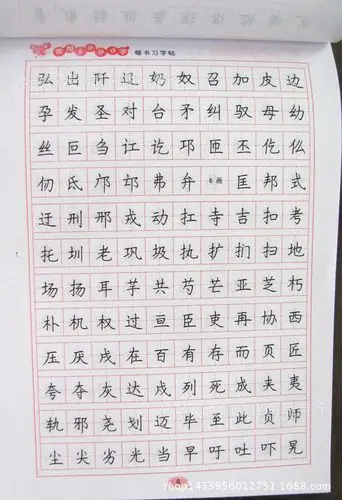 楷书习字帖
弘 出 阡 辽 奶 奴 召 加 皮 边
孕 发 圣 对 台 矛 纠 驭 母 幼
丝 叵 刍 讧 讫 邛 匝 丕 仡 仫
仞 氐 邝 邙 弗 弁 6画 匡 邦 式
迂 刑 邢 戎 动 扛 寺 吉 扣 考
托 圳 老 巩 圾 执 扩 扪 扫 地
场 扬 耳 芋 共 芍 芒 亚 芝 朽
朴 机 权 过 亘 臣 吏 再 协 西
压 厌 戌 在 百 有 存 而 页 匠
夸 夺 灰 达 戍 列 死 成 夹 夷
轨 邪 尧 划 迈 毕 至 此 贞 师
尘 尖 劣 光 当 早 吁 吐 吓
shop1433956012751.1688.com